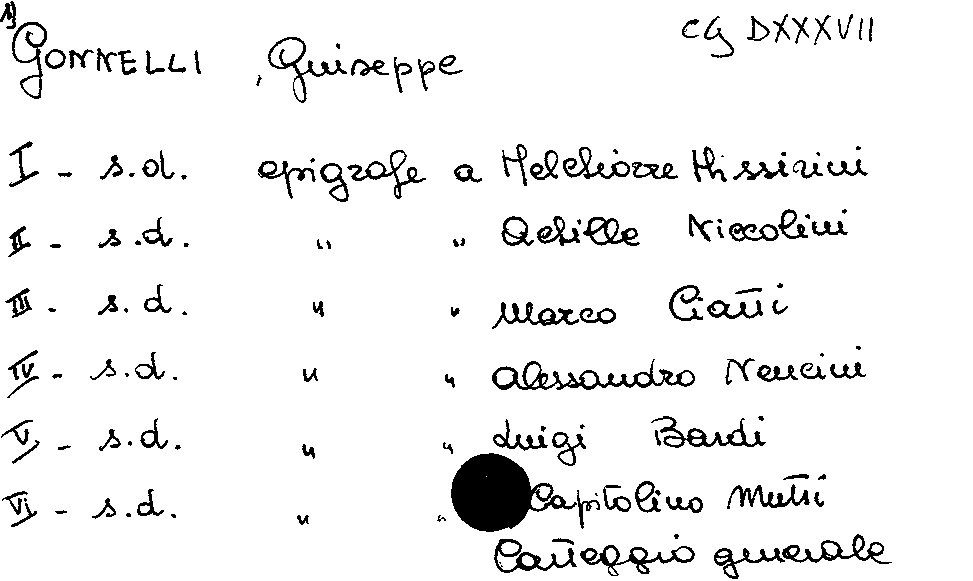 1)
GONNELLI, Giuseppe CG DXXXVII
I - s.d. epigrafe a Melchiorre Missirini
II - s.d. " " Achille Niccolini
III - s.d. " " Marco Ciatti
IV - s.d. " " Alessandro Nencini
V - s.d. " " Luigi Bardi
VI - s.d. " " Capitolino Mutti
Carteggio generale